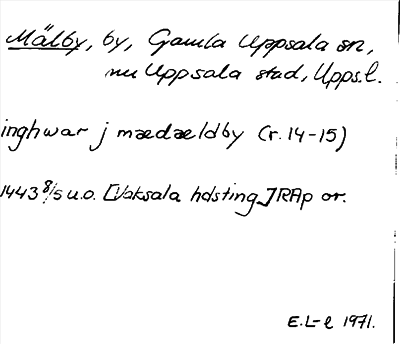 Mälby, by, Gamla Uppsala sn,
nu Uppsala stad, Upps.l.
inghwar j mædældby (r. 14-15)
1443 8/5 u.o. [Vaksala hdsting.] RAp or.
E.L-l 1971.